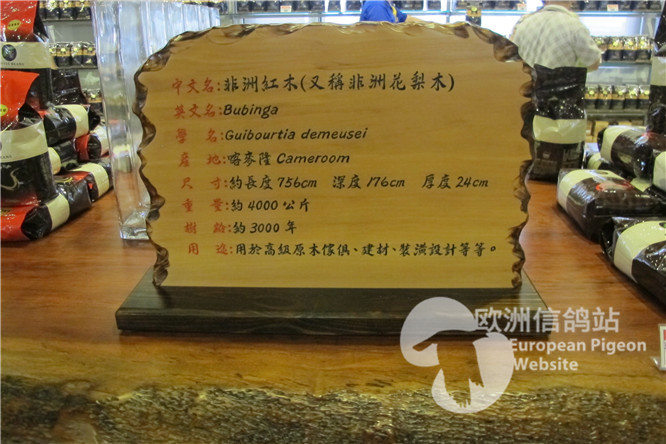 中文名:非洲紅木(又稱非洲花梨木)
英文名:Bubinga
學 名:Guibourtia demeusei
產 地:喀麥隆 Cameroom
尺 寸:約長度756cm 深度176cm 厚度24cm
重 量:約4000公斤
樹 齡:約3000年
用 途:用於高級原木傢俱、建材、裝潢設計等等。
欧洲信鸽站
European Pigeon
Website